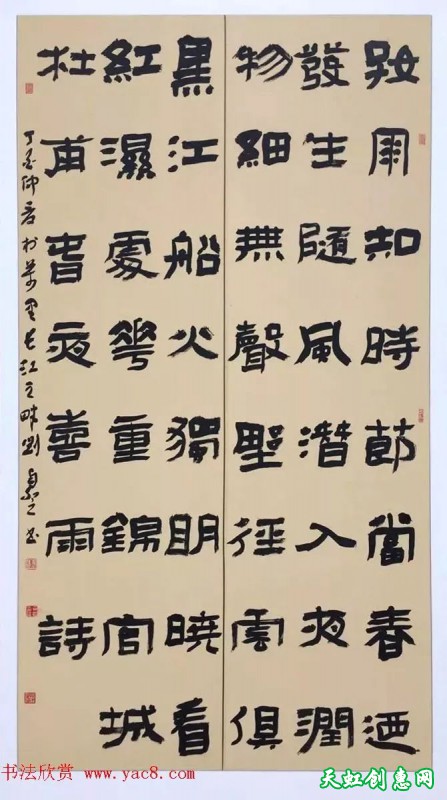 好雨知時節當春迺
發生隨風潛入夜潤
物細無聲野徑雲俱
黑江船火獨明曉看
紅濕處華重錦官城
杜甫春夜喜雨詩
丁酉仲春於萬里長江之畔劉書
书法欣赏 www.yac8.com
天虹创惠网